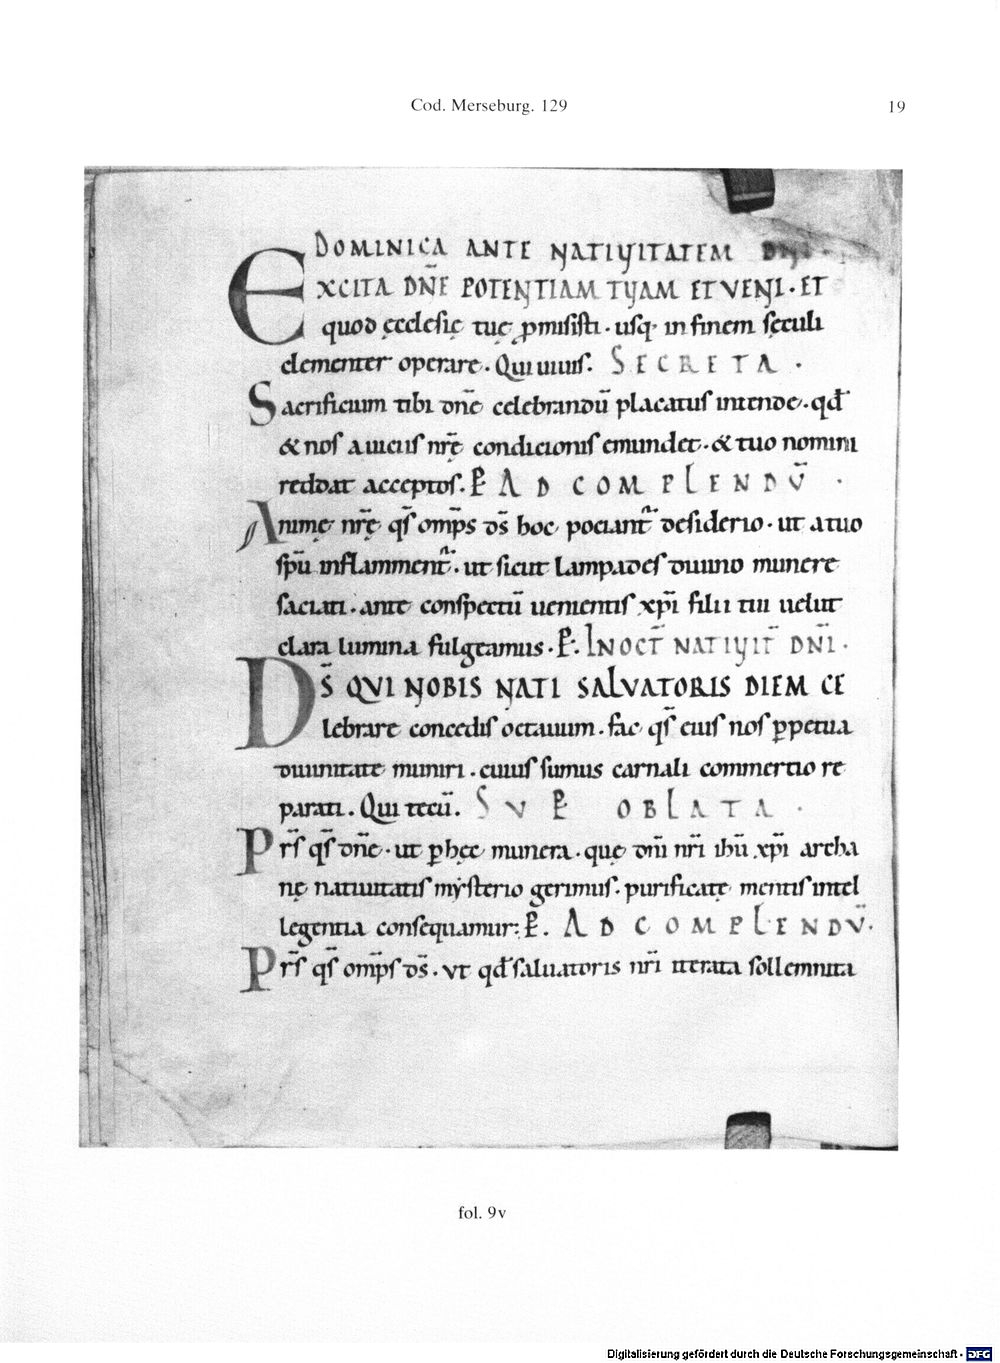 Cod. Merseburg. 129
19
DOMINICA ANTE NATIVITATEM DNI
EXCITA DN̄E POTENTIAM TUAM ET VENI · ET
quod ęcclesię tuę ꝓmisisti · usq; in finem sęculi
clementer operare · Qui uiuis. SECRETA ·
Sacrificium tibi dn̄e celebrandū placatus intende · qđ
& nos a uiciis nr̄ę condicionis emundet · & tuo nomini
reddat acceptos. P̄ AD COMPLENDŪ ·
Animę nr̄ę qs̄ omp̄s ds̄ hoc pociant᷒ desiderio · ut a tuo
sp̄u inflamment᷒ · ut sicut lampades diuino munere
saciati · ante conspectū uenientis xp̄i filii tui uelut
clara lumina fulgeamus · P̄. IN OCT̄ NATIVIT̄ DN̄I ·
DS̄ QVI NOBIS NATI SALVATORIS DIEM CE
lebrare concedis octauum · fac qs̄ eius nos ꝑpetua
diuinitate muniri · cuius sumus carnali commertio re
parati. Qui tecū. SVP̄ OBLATA ·
Pr̄s qs̄ dn̄e · ut ꝑ hęc munera · quę dn̄i nr̄i ihū xp̄i archa
nę natiuitatis mysterio gerimus · purificatę mentis intel
legentia consequamur: P̄. AD COMPLENDV̄ ·
Pr̄s qs̄ omp̄s ds̄ · vt qđ saluatoris nr̄i iterata sollemnita
fol. 9v
Digitalisierung gefördert durch die Deutsche Forschungsgemeinschaft - DFG